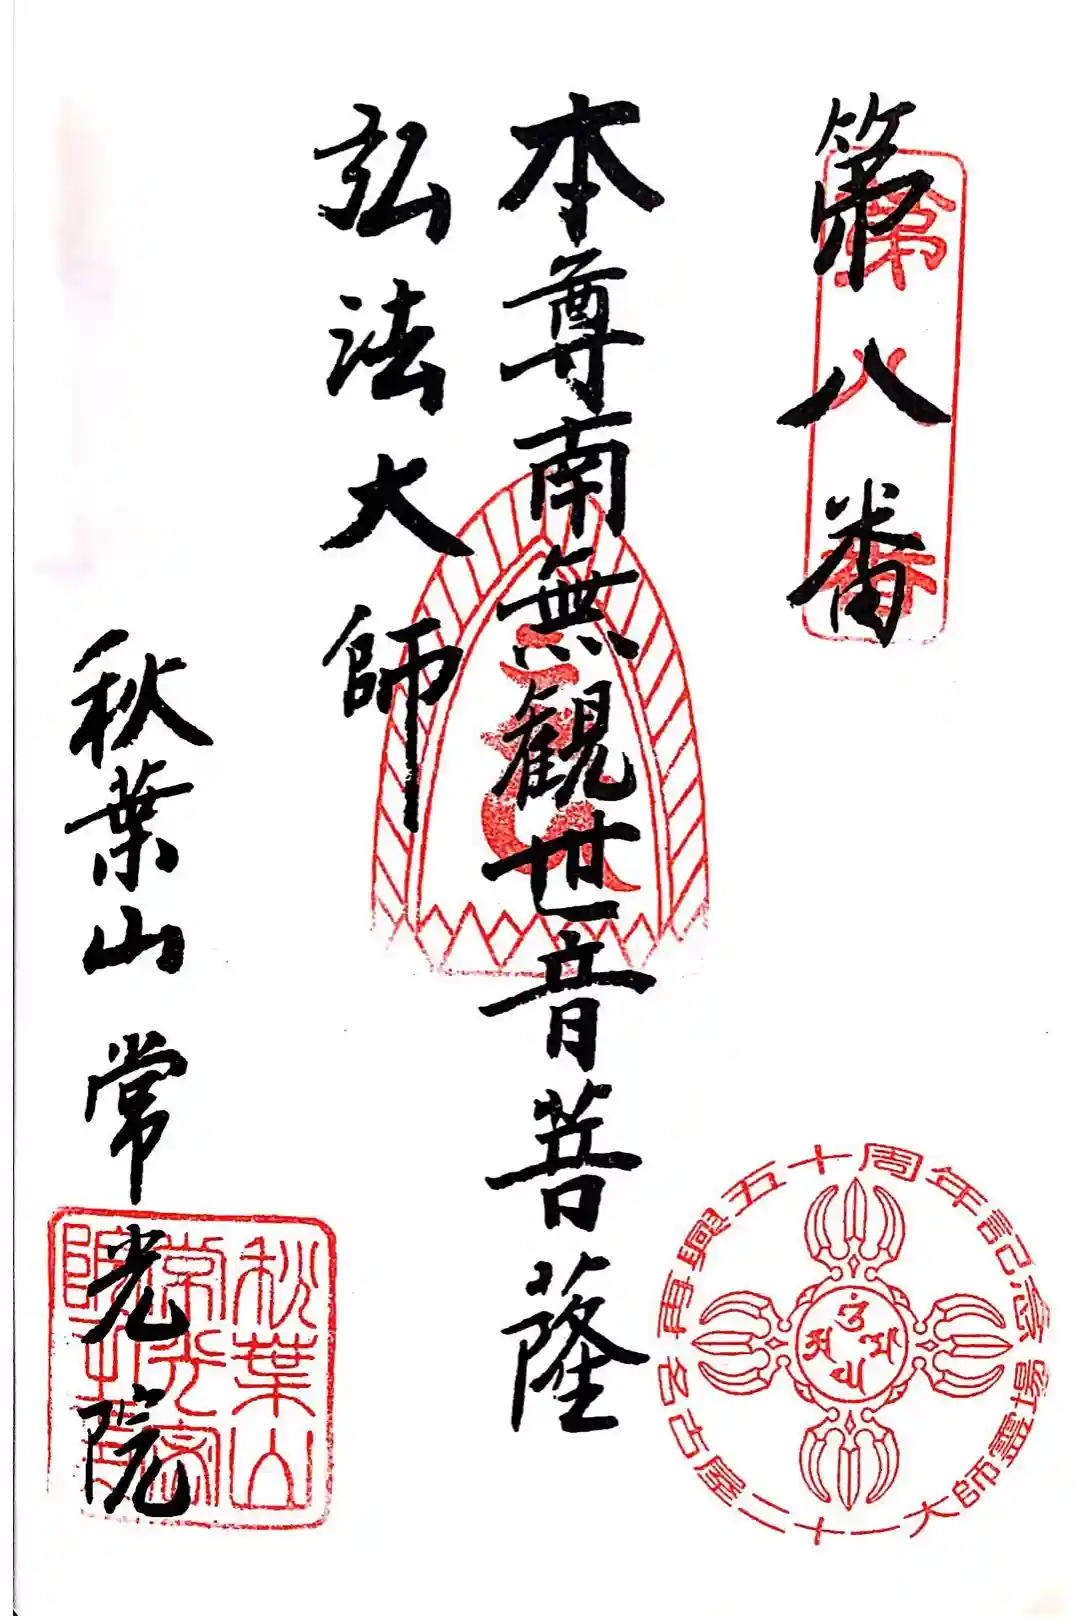 第八番
第八番
本尊南無観世音菩薩
弘法大師
秋葉山常光院
秋葉山
再興五十周年記念
名古屋二十一大師霊場